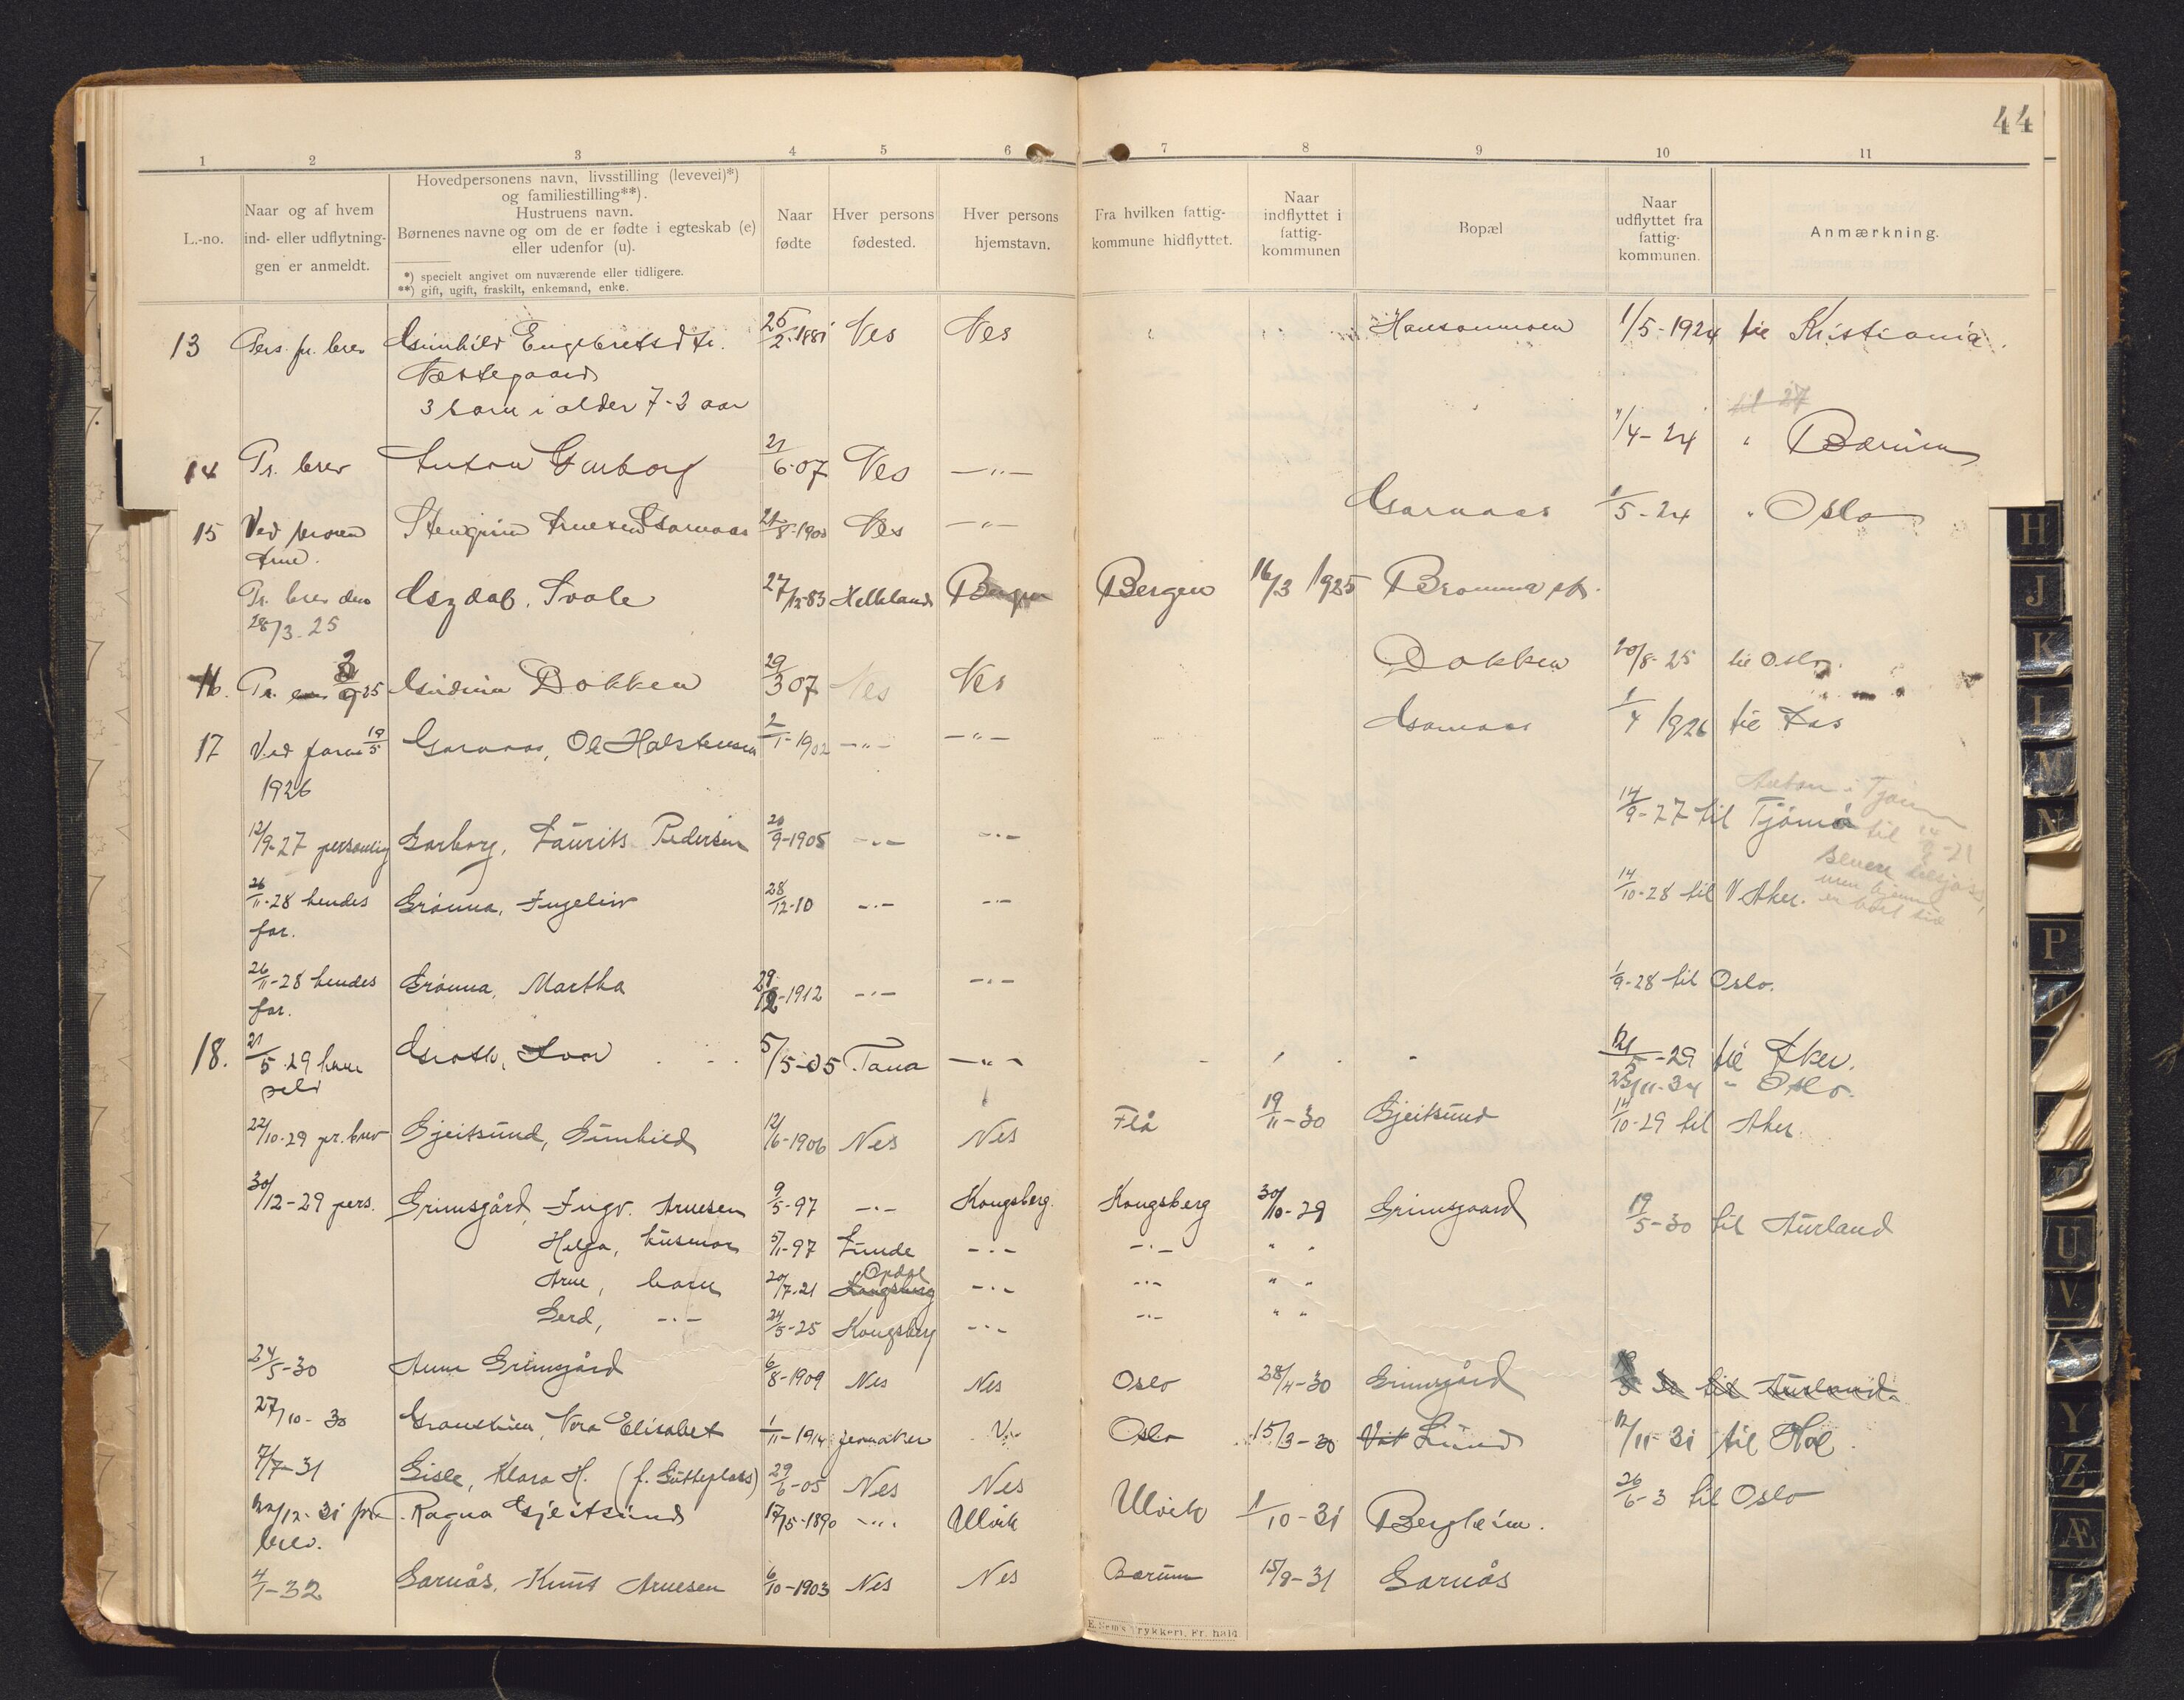 44
1 2 3 4 5 6 7 8 9 10 11
L.-no.
Naar og af hvem
ind- eller udflytnin-
gen er anmeldt.
Hovedpersonens navn, livsstilling (levevei)*)
og familiestilling**).
Hustruens navn.
Børnenes navne og om de er fødte i egteskab (e)
eller udenfor (u).
*) specielt angivet om nuværende eller tidligere.
**) gift, ugift, fraskilt, enkemand, enke.
Naar
fødte
Hver persons
fødested.
Hver persons
hjemstavn.
Fra hvilken fattig-
kommune hidflyttet.
Naar
indflyttet i
fattig-
kommunen
Bopæl
Naar
udflyttet fra
fattig-
kommunen.
Anmærkning.
13 Pers. pr. brev Gunhild Engebretsdtr. 25/2-1881 Nes Nes 1/5-1924 til Kristiania.
3 barn i alder 7-2 aar
til 27
14 Pr. brev Anton Garborg 21/6-07 Nes —„— 1/4-24 " Bærum
15 Ved broren Stengrim Arnesen Garnaas 21/8-1900 Nes —„— Garnaas 1/5-24 " Oslo
Arne.
Pr. brev den 27/12-83 Helleland Bergen Bergen 16/3 1925 Bromma st.
28/3-25
16. Pr. 9 25 Gudrun Dokken 29/3 07 Nes Nes Dokken 20/8-25 til Oslo.
17 Ved faren 19/5 Garnaas, Ole Halstensen 2/1-1902 —„— —„— Garnaas 1/4 1926 til Aas
1926
Anton i Tjøm
12/9-27 personlig Garborg, Laurits Pedersen 20/9-1905 —„— —„— 14/9-27 til Tjømø til 14/9-27
26/11-28 hendes Grønna, Ingelin 28/12-10 —„— —„— 14/10-28 til V. Aker.
far.
26/11-28 hendes Grønna, Martha 29/12-1912 —„— —„— 1/9-28 til Oslo.
far.
18. 21/5-29 ham Groth, Ivar 5/5-05 Tana —„— 21/5-29 til Aker.
selv 23/11-34 " Oslo.
22/10-29 pr. brev Gjeitsund, Gunhild 12/6-1906 Nes Nes Flå 19/11-30 Gjeitsund 14/10-29 til Aker.
30/12-29 pers. Grimsgård, Ingv. Arnesen 9/5-97 —„— Kongsberg. Kongsberg 30/10-29 Grimsgaard 19/5-30 til Aurland
Helga, husmor 5/1-97 Lunde —„— —„— " "
Arne, barn 20/7-21 Opdal Kongsberg —„— —„— " "
Gerd, —„— 24/5-25 Kongsberg —„— —„— " "
24/5-30 Anne Grimsgård 6/8-1909 Nes Nes Oslo 28/4-30 Grimsgård 19/5 30 til Aurland
27/10-30 Vera Elisabet 1/11-1914 Jevnaker Oslo 15/3-30 Lund 12/11-31 til Hol.
7/7-31 Gisle, Klara H. (f. Gutteplass) 29/6-05 Nes Nes 26/6-3 til Oslo
22/12-31 pr. Ragna Gjeitsund 17/5-1890 —„— Ulvik Ulvik 1/10-31 Bergheim.
brev.
4/1-32 Garnås, Knut Arnesen 6/10-1903 Nes Nes Bærum 15/9-31 Garnås
E. Sem's Trykkeri, Fr. hald.
H
J
K
L
M
N
P
U
V
X
Y
Z
Æ